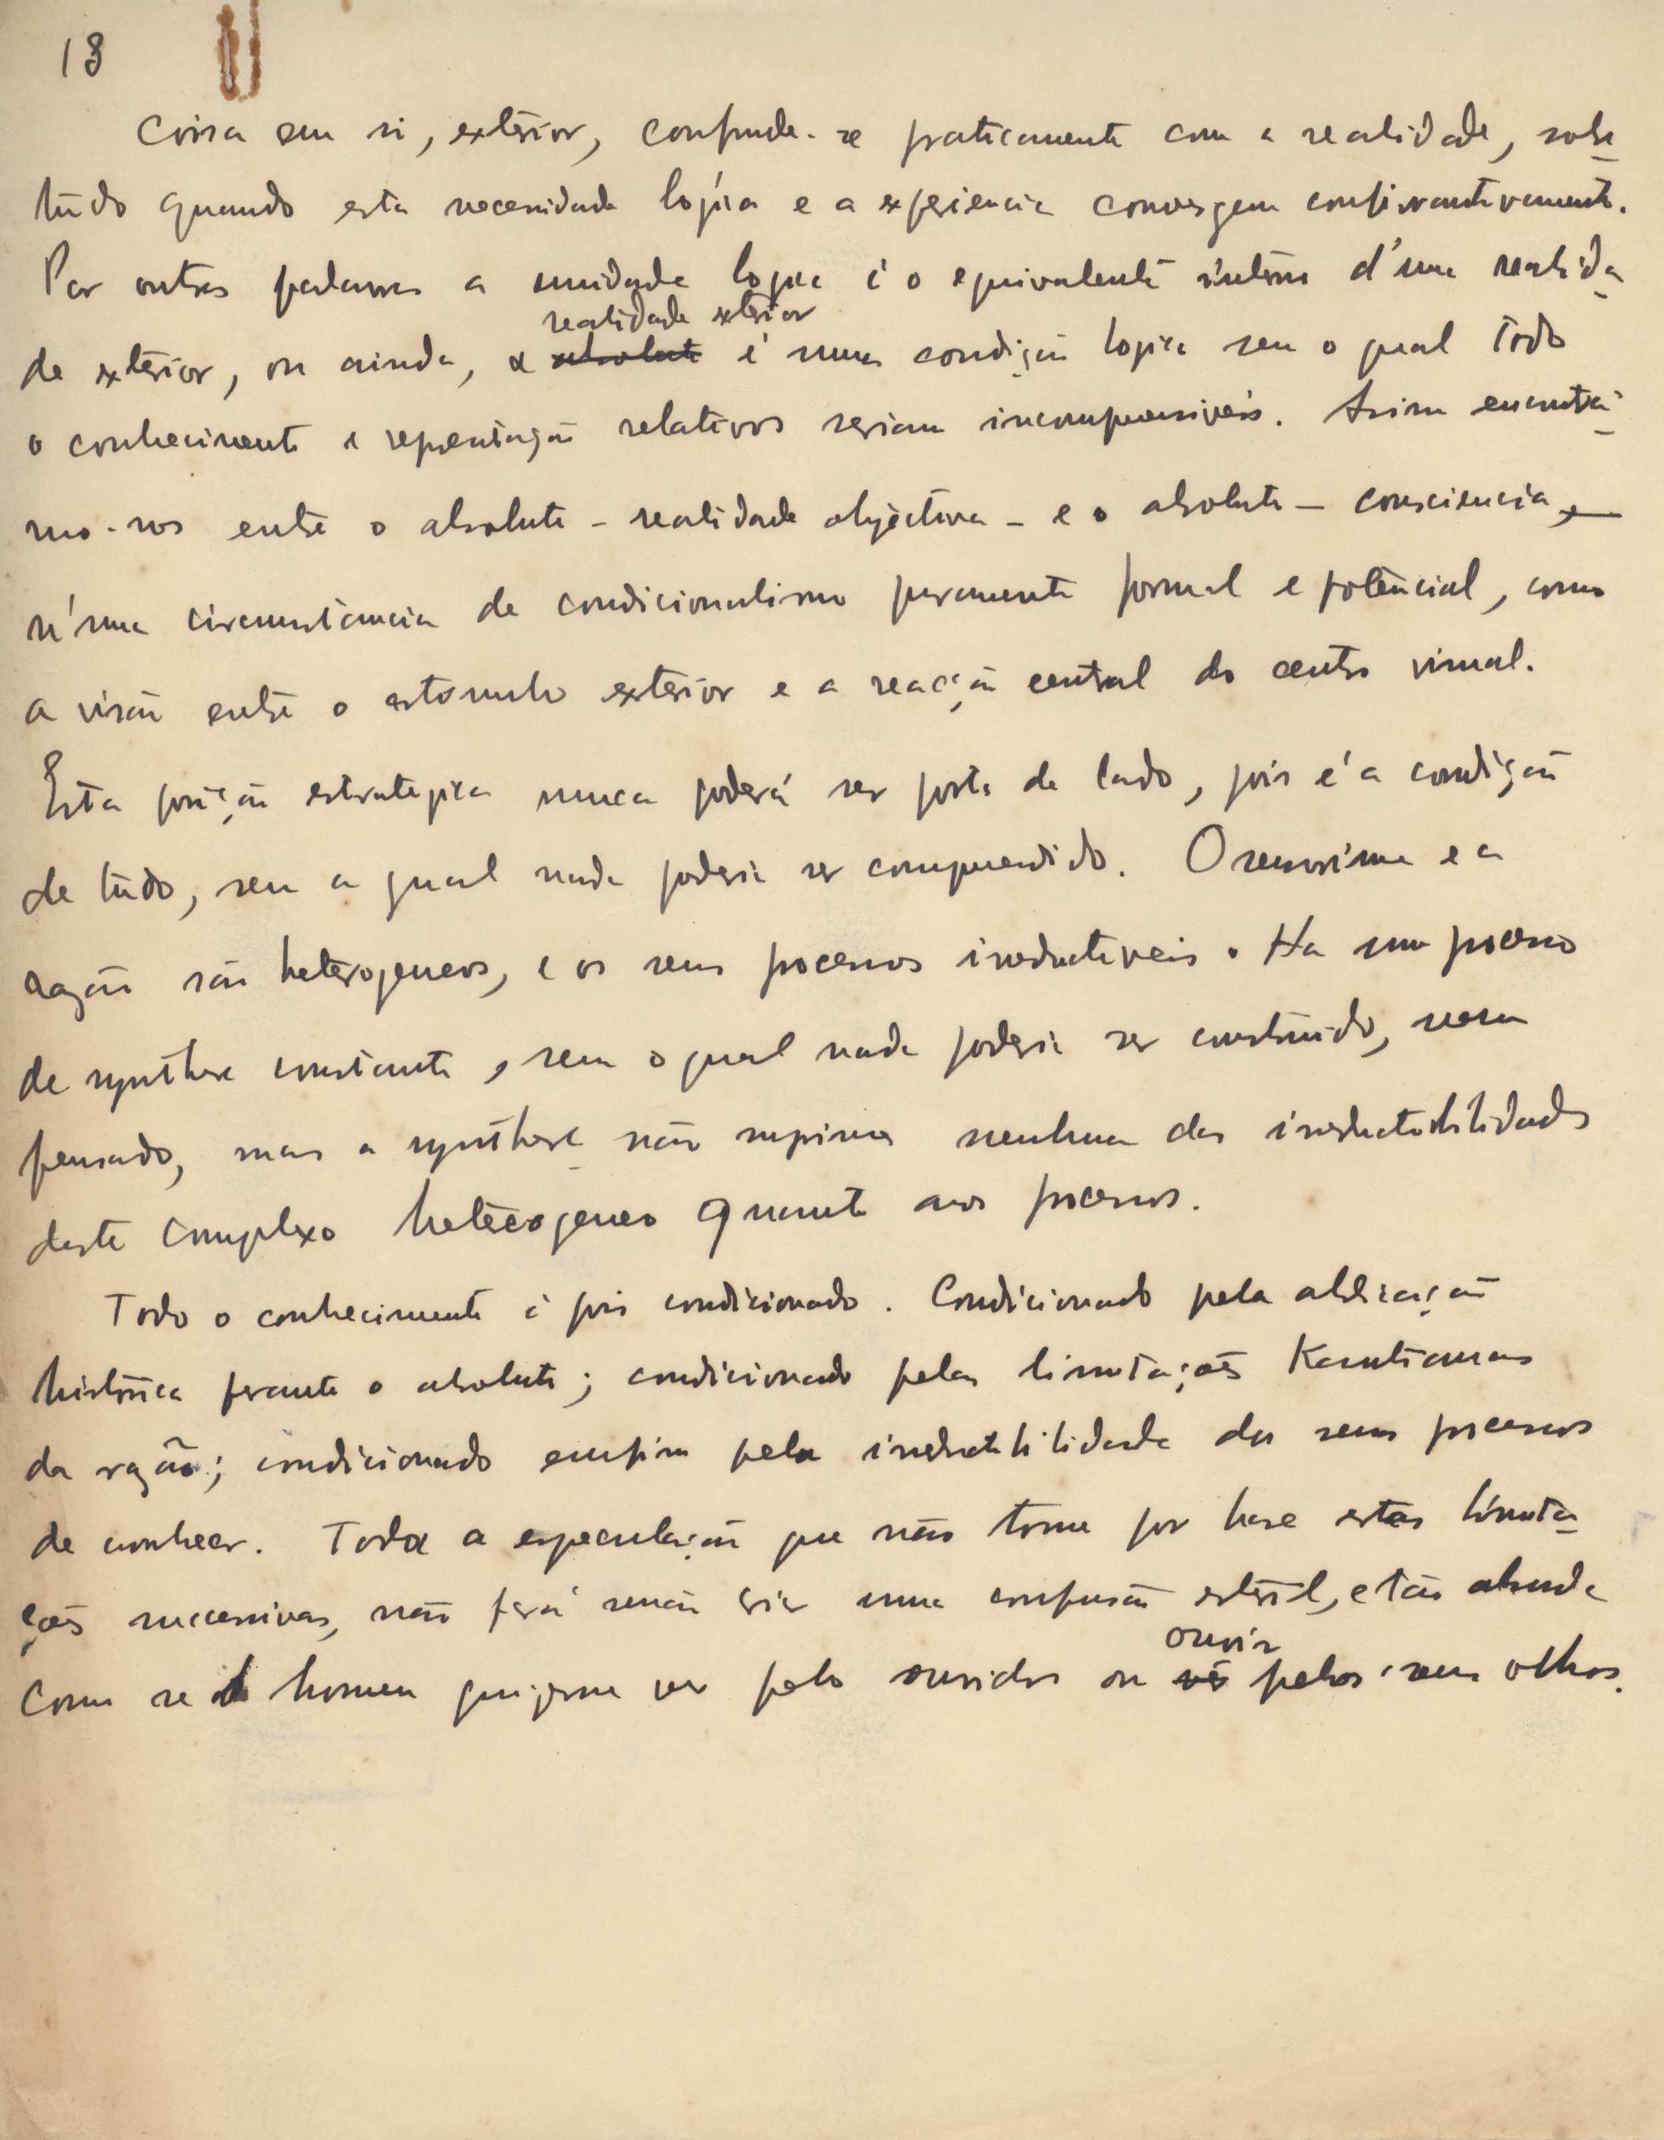 13
Coisa em si, exterior, confunde-se praticamente com a realidade, sobre
tudo quando esta necessidade logica e a experiencia convergem confirmativamente.
Por outras palavras a unidade logica é o equivalente interno d'uma realida
realidade exterior
de exterior, ou ainda, a absoluto é uma condição logica sem o qual todo
o conhecimento e representação relativos seriam incompreensiveis. Assim encontrá
mo-nos entre o absoluto - realidade objectiva - e o absoluto - consciencia,
n'uma circumstancia de condicionalismo puramente formal e potencial, como
a visão entre o estimulo exterior e a reacção central do centro visual.
Esta posição estrategica nunca poderá ser posta de lado, pois é a condição
de tudo, sem a qual nada poderia ser comprehendido. O sensorium e a
razão são heterogeneos, e os seus processos irreductiveis. Ha um processo
de synthese constante, sem o qual nada poderia ser construido, nem
pensado, mas a synthese não suprime nenhuma das irreductibilidades
deste complexo heterogeneo quanto aos processos.
Todo o conhecimento é pois condicionado. Condicionado pela abdicação
histórica perante o absoluto; condicionado pelas limitações Kantianas
da razão; condicionado emfim pela irreductibilidade dos seus processos
de conhecer. Toda a especulação que não tome por base estas limita
ções successivas, não fará senão criar uma confusão estéril, e tão absurda
ouvir
como se o homem quizesse ver pelos ouvidos ou vêr pelos seus olhos.